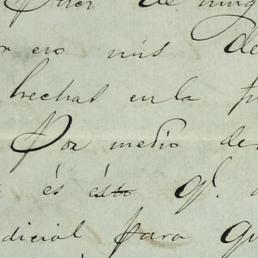 de ning
ero mis de
hechas en la
Por medio de
és esto q.
dicial para qu